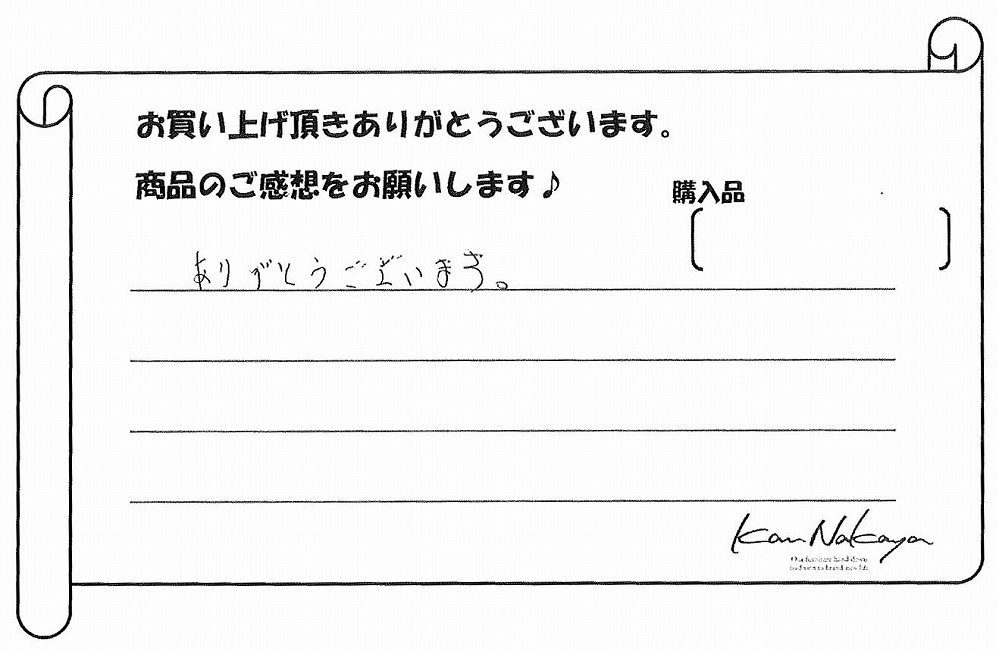 お買い上げ頂きありがとうございます。
商品のご感想をお願いします♪
購入品
ありがとうございます。
Kan Nakaya
Our furniture hand down
tradition to brand new life